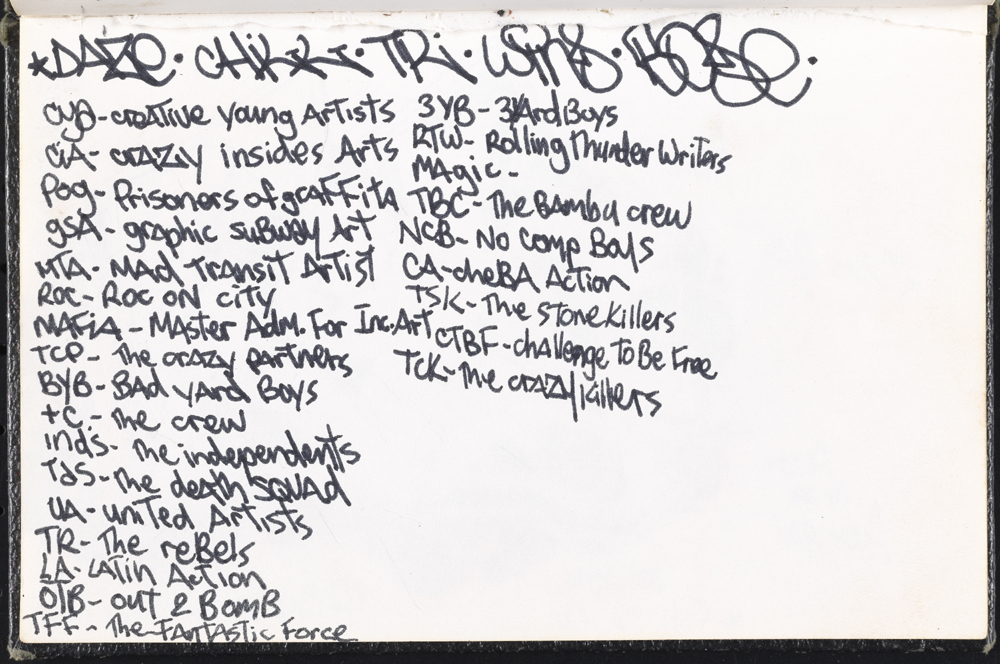 *DAZE · CHiKI · TRi · WiNS · ROSE ·
CYA - creATive Young Artists
CiA - crAZy insides Arts
Pog - Prisoners of grAFFitA
gSA - graphic suBway Art
MTA - MAd Transit Artist
Roc - Roc oN city
MAFiA - MAster Adm. For Inc. Art
TCP - The crazy partners
BYB - BAd yArd Boys
TC - The crew
inds - The independents
TdS - The death SQUAd
UA - uniTed Artists
TR - The reBels
LA - LATin AcTion
OTB - out 2 BomB
TFF - The FANTAsTic Force
3YB - 3YArd Boys
RTW - Rolling Thunder WriTers
MAgic -
TBC - The BAmbu crew
NCB - No Comp Boys
CA - cheBA AcTion
TSK - The sTone Killers
CTBF - chAllenge To Be Free
TCK - The crAZy Killers